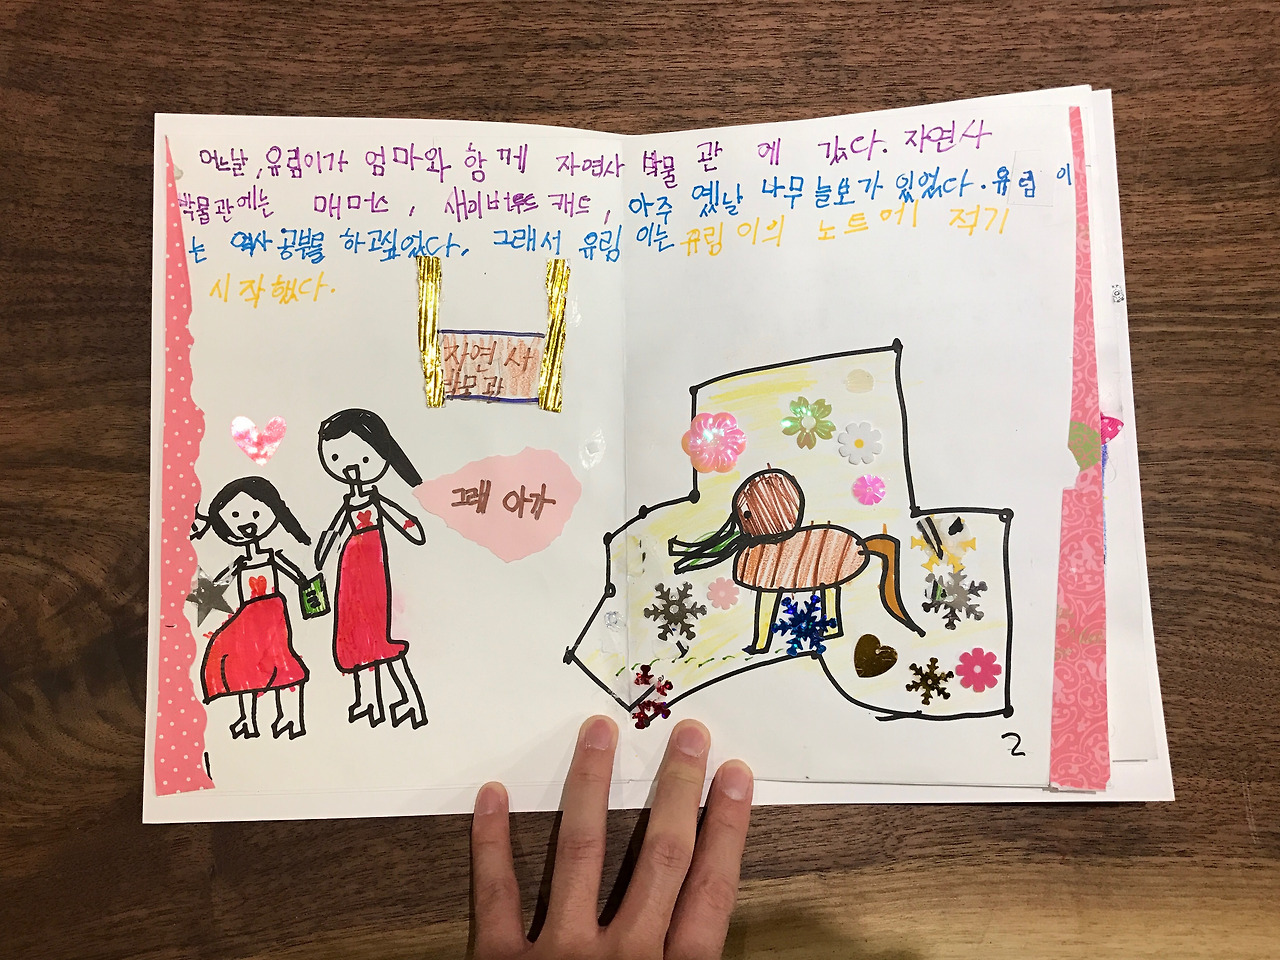 어느날, 유림이가 엄마와 함께 자연사 박물관에 갔다. 자연사
박물관에는 매머스, 새이버투드 캐드, 아주 옛날 나무늘보가 있었다. 유림이
는 역사 공부를 하고싶었다, 그래서 유림이는 유림이의 노트에 적기
시작했다.
자연사
박모관
그래 아가
2